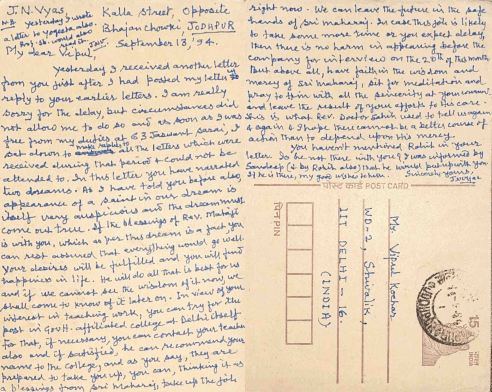 J.N. Vyas, Kalla Street, Opposite
Bhajan chowki, JODHPUR
September 13, '94.
N.B. yesterday I wrote
a letter to yogesh also.
My dear Vipul,
Yesterday I received another letter
from you just after I had posted my letter in
reply to your earlier letters. I am really
sorry for the delay, but circumstances did
not allow me to do so and as soon as I was
free from my duties at 63 Jaswant Sarai, I
sat down to make replies to all the letters which were
received during that period & could not be
attended to. In this letter you have narrated
two dreams. As I have told you before also,
appearance of a saint in our dream is
itself very auspicious and the dream must
come out true. If the blessings of Rev. Maharaj
is with you, which as per this dream is a fact you
can rest assured that everything would go well.
Your desires will be fulfilled and you will find
happiness in life. He will do all that is best for us
and if we cannot see the wisdom of it now, we
shall come to know of it later on. In view of your
interest in teaching work, you can try for the
post in Govt. affiliated college of Delhi itself
for that, if necessary, you can contact your teacher
also and if satisfied, he can recommend your
name to the college, and as you say, they are
prepared to take you up, you can, thinking it as
a blessings from Sri Maharaj, take up the job
right now. We can leave the future in the safe
hands of Sri Maharaj. In case this job is likely
to take some more time or you expect delay,
then there is no harm in appearing before the
company for interview on the 20th of this month.
But above all, have faith in the wisdom and
mercy of Sri Maharaj, sit for meditation and
pray to him with all the sincerity at your command
and leave the result of your efforts to his care.
This is what Rev. Doctor Sahib used to tell us again
& again & I hope there cannot be a better course of
action than to depend upon His mercy.
You haven't mentioned Rohit in your
letter. Is he not there with you? I was informed by
Sandeep (& by Rohit also) that he would put up with you
If he is there, my good wishes to him. Sincerely yours,
J.N. Vyas
पोस्ट कार्ड POST CARD
पिन PIN
Mr. Vipul Kochar,
WD-2, Shivalik,
IIT DELHI-16.
(INDIA)
15